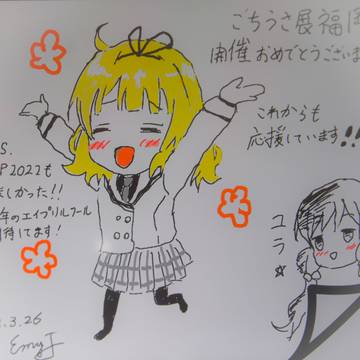 ごちうさ展福
開催おめでとうございま
これからも
応援しています!!
S.
P2022も
しかった!!
年のエイプリルフール
待してます!
ユラ☆
.3.26
Emy